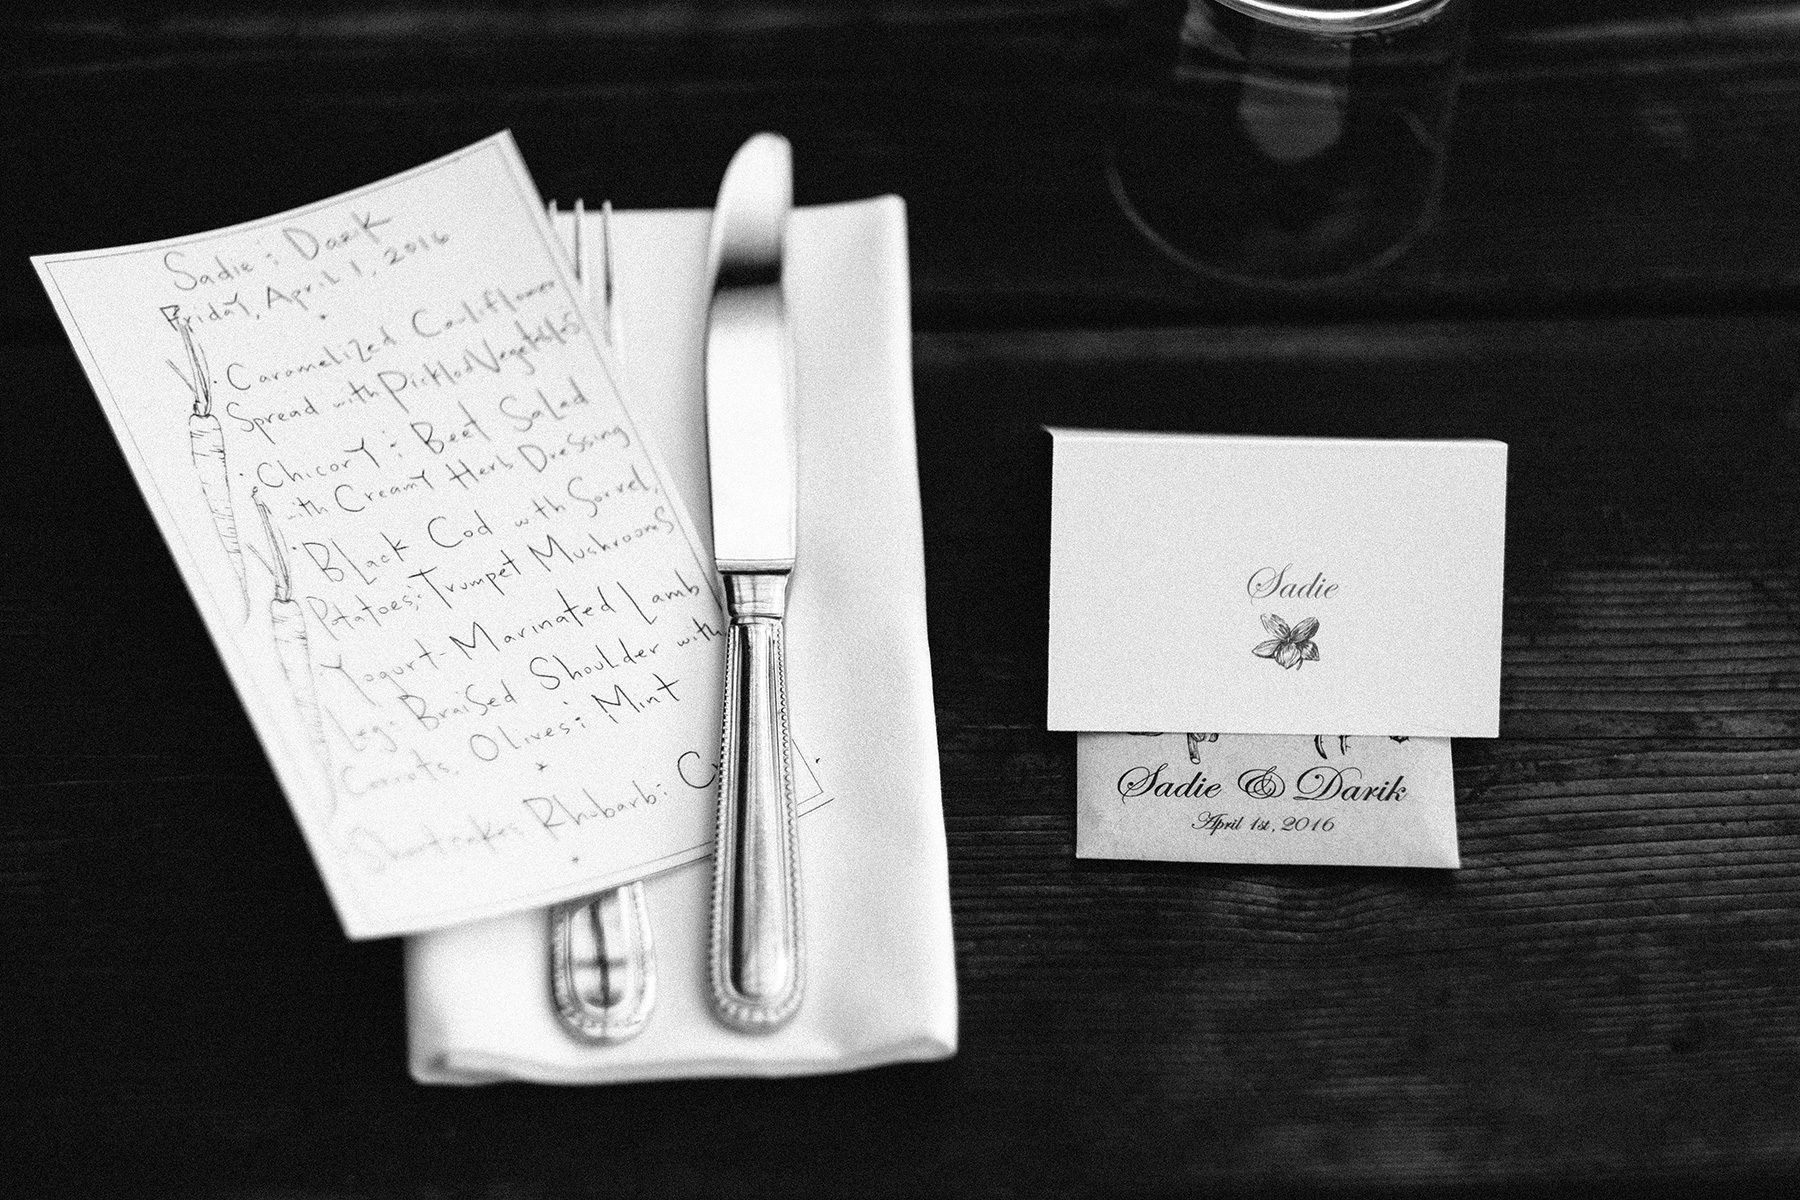 Sadie & Darik
Friday, April 1, 2016
Caramelized Cauliflower
Spread with Pickled Vegetables
Chicory & Beet Salad
with Creamy Herb Dressing
Black Cod with Sorrel,
Potatoes & Trumpet Mushrooms
Yogurt-Marinated Lamb
Leg & Braised Shoulder with
Carrots, Olives & Mint
Shortcakes Rhubarb &
Sadie
Sadie & Darik
April 1st, 2016